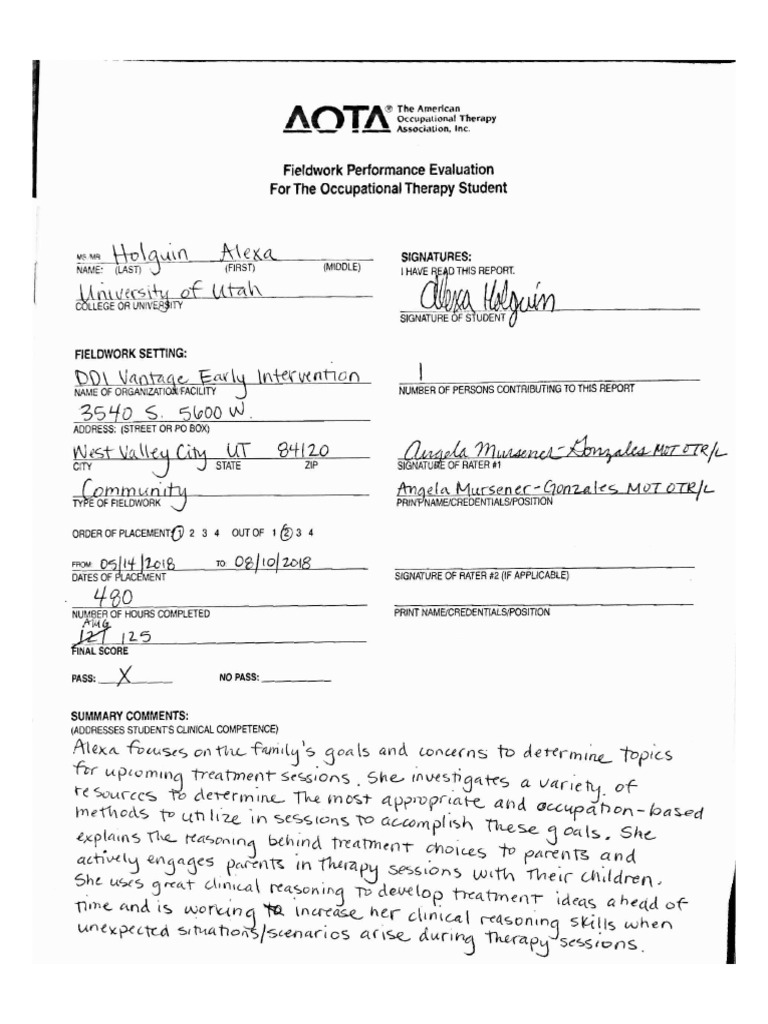 AOTA® The American
Occupational Therapy
Association, Inc.
Fieldwork Performance Evaluation
For The Occupational Therapy Student
MS. MR. Holguin Alexa
NAME: (LAST) (FIRST) (MIDDLE)
University of Utah
COLLEGE OR UNIVERSITY
FIELDWORK SETTING:
DDI Vantage Early Intervention
NAME OF ORGANIZATION/FACILITY
3540 S. 5600 W.
ADDRESS: (STREET OR PO BOX)
West Valley City UT 84120
CITY STATE ZIP
Community
TYPE OF FIELDWORK
ORDER OF PLACEMENT: 1 2 3 4 OUT OF 1 2 3 4
FROM 05/14/2018 TO 08/10/2018
DATES OF PLACEMENT
480
NUMBER OF HOURS COMPLETED
AMG
127 125
FINAL SCORE
PASS: X NO PASS:
SIGNATURES:
I HAVE READ THIS REPORT.
Alexa Holguin
SIGNATURE OF STUDENT
1
NUMBER OF PERSONS CONTRIBUTING TO THIS REPORT
Angela Mursener-Gonzales MOT OTR/L
SIGNATURE OF RATER #1
Angela Mursener-Gonzales MOT OTR/L
PRINT NAME/CREDENTIALS/POSITION
SIGNATURE OF RATER #2 (IF APPLICABLE)
PRINT NAME/CREDENTIALS/POSITION
SUMMARY COMMENTS:
(ADDRESSES STUDENT'S CLINICAL COMPETENCE)
Alexa focuses on the family's goals and concerns to determine topics
for upcoming treatment sessions. She investigates a variety of
resources to determine the most appropriate and occupation-based
methods to utilize in sessions to accomplish these goals. She
explains the reasoning behind treatment choices to parents and
actively engages parents in therapy sessions with their children.
She uses great clinical reasoning to develop treatment ideas ahead of
time and is working to increase her clinical reasoning skills when
unexpected situations/scenarios arise during therapy sessions.